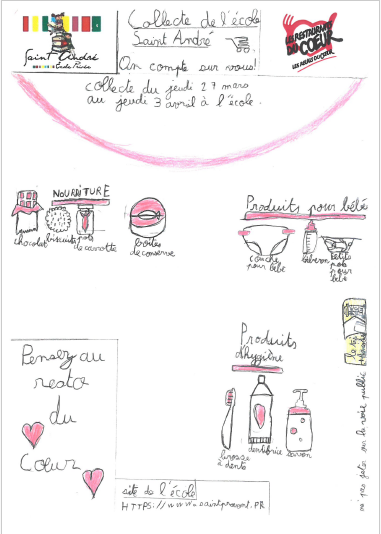 Saint André
École Privée
Collecte de l'école
Saint André
On compte sur vous!
LES RESTAURANTS
DU COEUR
LES RELAIS DU COEUR
collecte du jeudi 27 mars
au jeudi 3 avril à l'école.
NOURRITURE
chocolat
biscuits
pots
de carotte
boites
de conserve
Produits pour bébé
couche
pour bébé
biberon
petits
pots
pour
bébé
Pensez au
resto
du
Coeur
Produits
d'hygiène
brosse
à dents
dentifrice
savon
site de l'école
ne pas jeter sur la voie publique